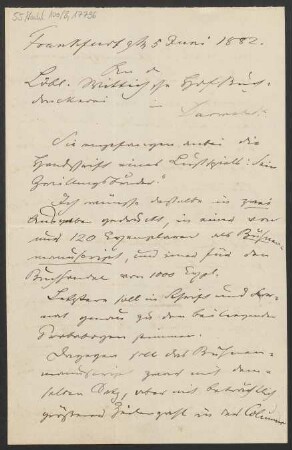 Frankfurt a/M 5 Juni 1882.
An d
Löbl. Wittich'sche Hofbuch-
druckerei
in
Darmstadt
Sie empfangen anbei die
Handschrift eines Lustspiels: "Sein
Zwillingsbruder"
Ich wünsche dasselbe in zwei
Ausgaben gedruckt, in einer von
nur 120 Exemplaren als Bühnen-
manuscript, und einer für den
Buchhandel von 1000 Expl.
Letztere soll in Schrift und For-
mat genau zu den beiliegenden
Probebogen stimmen.
Dagegen soll das Bühnen-
manuscript zwar mit dem-
selben Satz, aber mit beträchtlich
größerer Zeilenzahl in der Columne